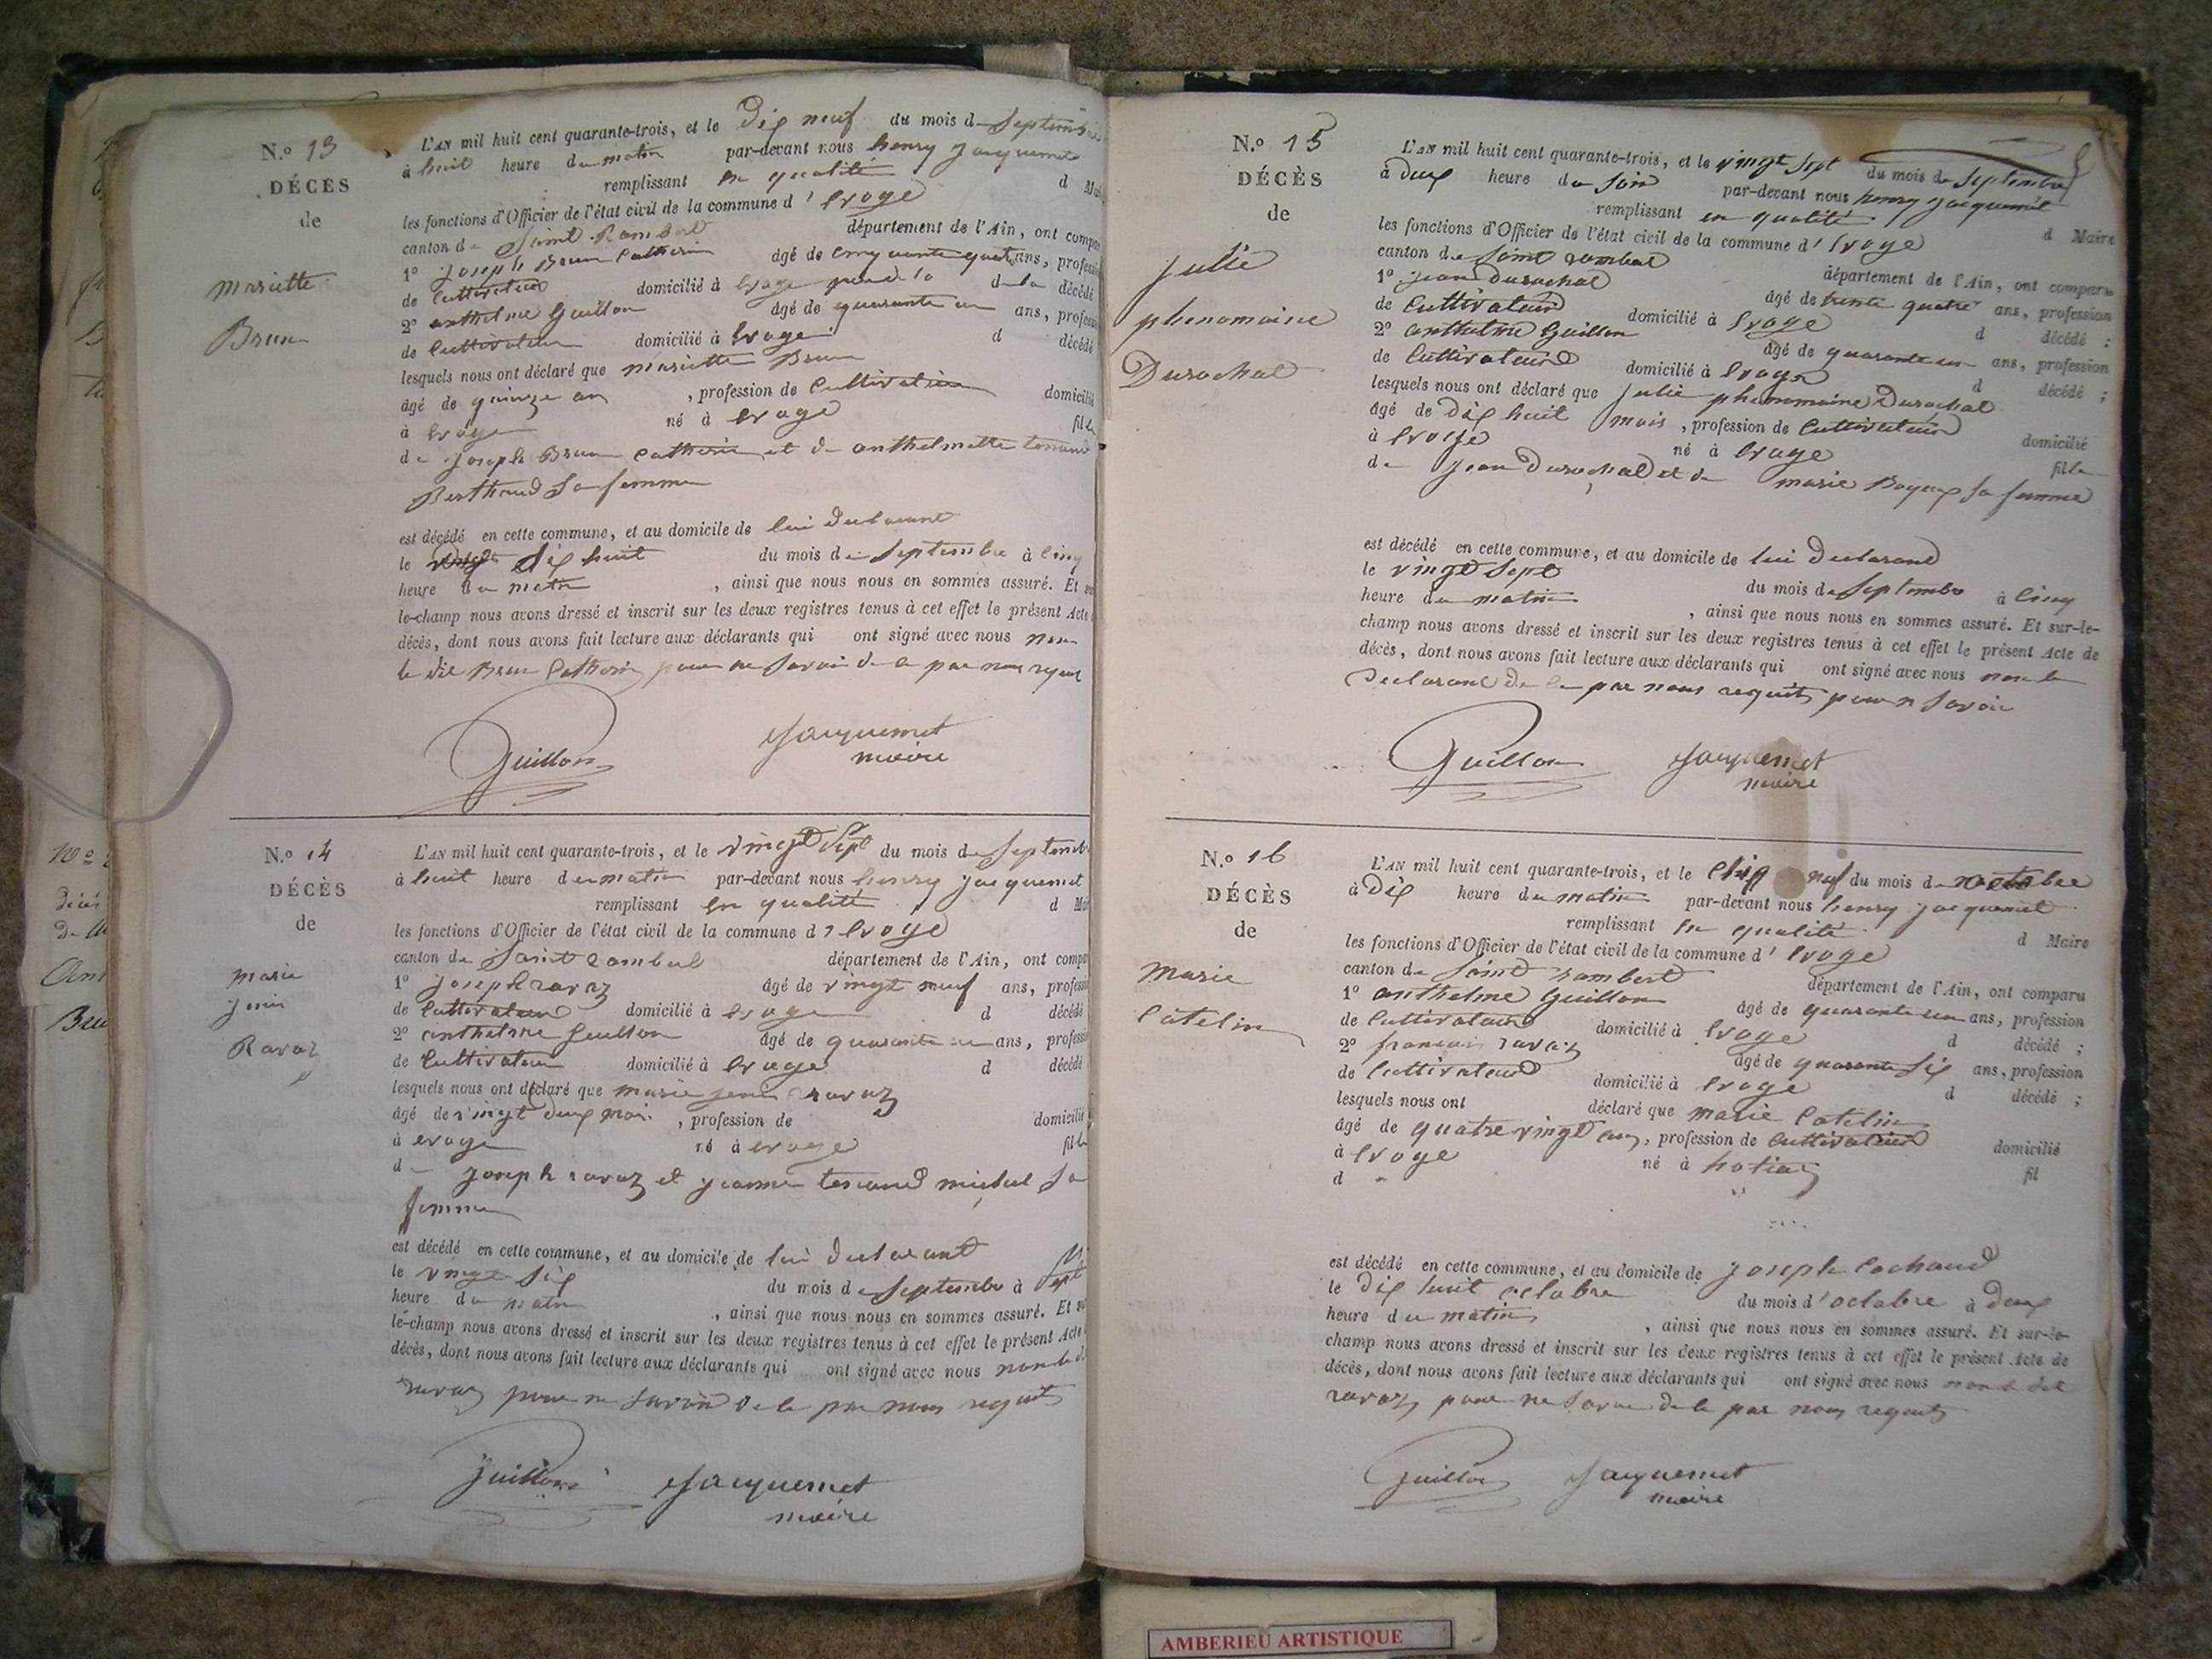 N.o 13
DÉCÈS
de
mariette
Brun
L'AN mil huit cent quarante-trois, et le Dix neuf du mois de Septembre
à huit heure du matin par-devant nous henry jacquemet
remplissant en qualité d Maire
les fonctions d'Officier de l'état civil de la commune d'evoge
canton de Saint Rambert département de l'Ain, ont compa
1o joseph Brun Catherin âgé de cinquante quatre ans, profession
de Cultivateur domicilié à evoge de la décédé
2o anthelme Guillon âgé de quarante un ans, profession
de Cultivateur domicilié à evoge d décédé
lesquels nous ont déclaré que mariette Brun
âgé de quinze an , profession de Cultivateur domicilié
à evoge né à evoge fille
de joseph Brun Catherin et de anthelmette tenand
Berthand Sa femme
est décédé en cette commune, et au domicile de lui declarant
le dix huit du mois de Septembre à cinq
heure du matin , ainsi que nous nous en sommes assuré. Et sur
le-champ nous avons dressé et inscrit sur les deux registres tenus à cet effet le présent Acte
décès, dont nous avons fait lecture aux déclarants qui ont signé avec nous non
le dit Brun Catherin pour ne savoir de ce par nous requi
Guillon Jacquemet
maire
N.o 14
DÉCÈS
de
marie
jenie
Ravaz
L'AN mil huit cent quarante-trois, et le vingt Sept du mois de Septemb
à huit heure du matin par-devant nous henry jacquemet
remplissant en qualité d Mai
les fonctions d'Officier de l'état civil de la commune d'evoge
canton de Saint rambert département de l'Ain, ont compa
1o joseph ravaz âgé de vingt neuf ans, profession
de Cultivateur domicilié à evoge d décédé
2o anthelme Guillon âgé de quarante un ans, profession
de Cultivateur domicilié à evoge d décédé
lesquels nous ont déclaré que marie jenie ravaz
âgé de vingt deux mois , profession de domicilié
à evoge né à evoge fille
de joseph ravaz et jeanne tenand michel sa
femme
est décédé en cette commune, et au domicile de lui declarant
le vingt six du mois de Septembre à Sept
heure du matin , ainsi que nous nous en sommes assuré. Et sur
le-champ nous avons dressé et inscrit sur les deux registres tenus à cet effet le présent Acte
décès, dont nous avons fait lecture aux déclarants qui ont signé avec nous non le d
ravaz pour ne savoir de le par nous requis
Guillon Jacquemet
maire
N.o 15
DÉCÈS
de
julie
phenomaine
Durochat
L'AN mil huit cent quarante-trois, et le vingt Sept du mois de Septembre
à deux heure du soir par-devant nous henry jacquemet
remplissant en qualité d Maire
les fonctions d'Officier de l'état civil de la commune d'evoge
canton de Saint rambert département de l'Ain, ont comparu
1o jean durochat âgé de trente quatre ans, profession
de Cultivateur domicilié à evoge d décédé ;
2o anthelme Guillon âgé de quarante un ans, profession
de Cultivateur domicilié à evoge d décédé ;
lesquels nous ont déclaré que julie phenomaine Durochat
âgé de dix huit mois , profession de Cultivateur domicilié
à evoge né à evoge fille
de jean Durochat et de marie Boyeux sa femme
est décédé en cette commune, et au domicile de lui declarant
le vingt Sept du mois de Septembre à cinq
heure du matin , ainsi que nous nous en sommes assuré. Et sur-le-
champ nous avons dressé et inscrit sur les deux registres tenus à cet effet le présent Acte de
décès, dont nous avons fait lecture aux déclarants qui ont signé avec nous non le
declarant de ce par nous requis pour n savoir
Guillon Jacquemet
maire
N.o 16
DÉCÈS
de
marie
Catelin
L'AN mil huit cent quarante-trois, et le dix neuf du mois d octobre
à Dix heure du matin par-devant nous henry jacquemet
remplissant en qualité d Maire
les fonctions d'Officier de l'état civil de la commune d'evoge
canton de Saint rambert département de l'Ain, ont comparu
1o anthelme Guillon âgé de quarante un ans, profession
de Cultivateur domicilié à evoge d décédé ;
2o francois ravaz âgé de quarante six ans, profession
de Cultivateur domicilié à evoge d décédé ;
lesquels nous ont déclaré que marie Catelin
âgé de quatre vingt ans, profession de Cultivateur domicilié
à evoge né à hotiaz fil
d
est décédé en cette commune, et au domicile de joseph Cochand
le dix huit octobre du mois d'octobre à deux
heure du matin , ainsi que nous nous en sommes assuré. Et sur-le-
champ nous avons dressé et inscrit sur les deux registres tenus à cet effet le présent Acte de
décès, dont nous avons fait lecture aux déclarants qui ont signé avec nous non le dit
ravaz pour ne savoir de le par nous requis
Guillon Jacquemet
maire
AMBERIEU ARTISTIQUE